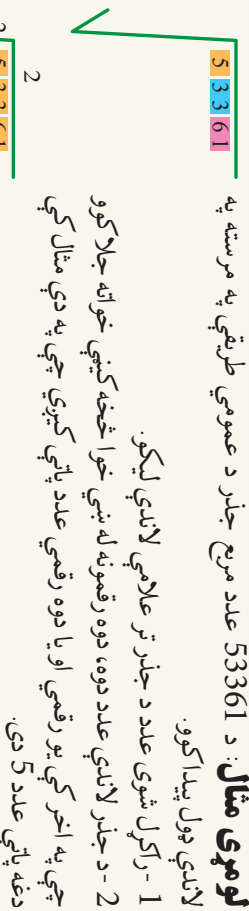 لومړی مثال: د 53361 عدد مربع جذر د عمومي طريقې په مرسته په
لاندې ډول پيدا کوو.
1 -راکړل شوی عدد د جذر تر علامې لاندې ليکو.
2 -د جذر لاندې عدد دوه، دوه رقمونه له ښي خوا څخه کيڼې خواته جلا کوو
چې په اخر کې يو رقمي او يا دوه رقمي عدد پاتې کيږي چې په دې مثال کې
دغه پاتې عدد 5 دی.
5 33 61
2